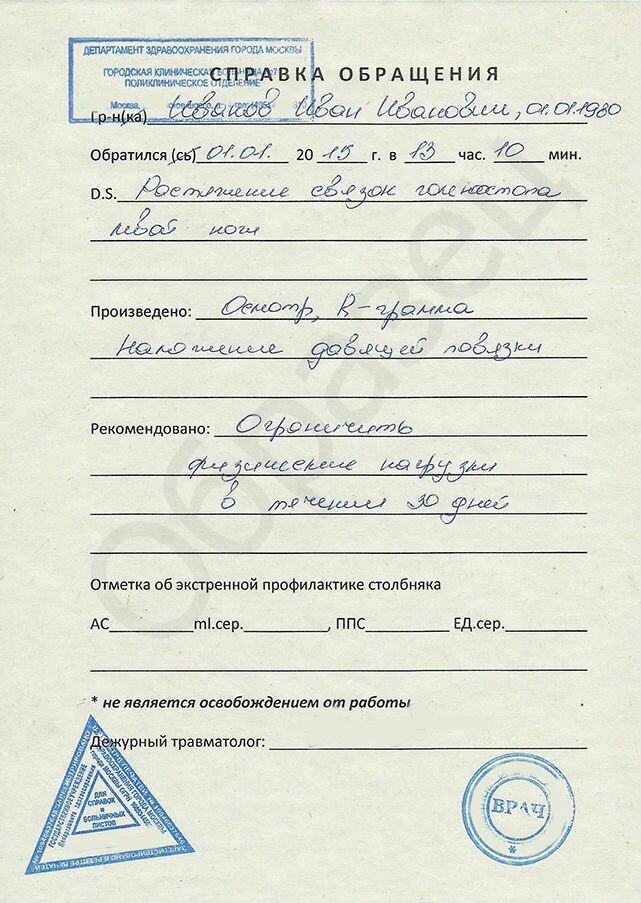 ДЕПАРТАМЕНТ ЗДРАВООХРАНЕНИЯ ГОРОДА МОСКВЫ
ГОРОДСКАЯ КЛИНИЧЕСКАЯ БОЛЬНИЦА №7
ПОЛИКЛИНИЧЕСКОЕ ОТДЕЛЕНИЕ
Москва,
СПРАВКА ОБРАЩЕНИЯ
Гр-н(ка) Иванов Иван Иванович, 01.01.1980
Обратился (сь) 01.01. 20 15 г. в 13 час. 10 мин.
D.S. Растяжение связок голеностопа
левой ноги
Произведено: Осмотр, R-грамма
Наложение давящей повязки
Рекомендовано: Ограничить
физические нагрузки
в течении 30 дней
Образец
Отметка об экстренной профилактике столбняка
АС ml.сер. , ППС ЕД.сер.
* не является освобождением от работы
Дежурный травматолог:
ДЛЯ
СПРАВОК
И
БОЛЬНИЧНЫХ
ЛИСТОВ
ВРАЧ